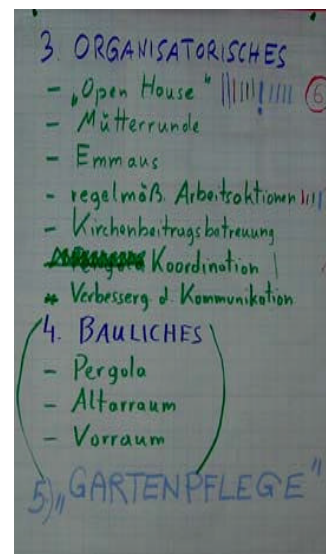 3. ORGANISATORISCHES
- „Open House" 6
- Mütterrunde
- Emmaus
- regelmäß. Arbeitsaktionen
- Kirchenbeitragsbetreuung
Koordination
* Verbesserg d. Kommunikation
4. BAULICHES
- Pergola
- Altarraum
- Vorraum
5) „GARTENPFLEGE"